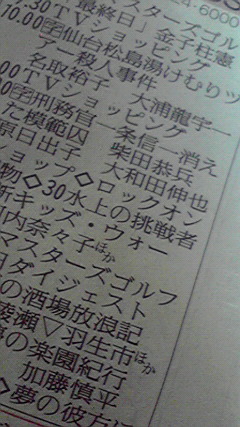 スターズゴル
最終日」金子柱憲
7.30TVショッピング
10.00仙台松島湯けむりツ
アー殺人事件
名取裕子 大浦龍宇一
00TVショッピング
00刑務官一条信一消え
た模範囚 柴田恭兵
原日出子 大和田伸也
ショップ◇ロックオン
物◇30水上の挑戦者
新キッズ・ウォー
内奈々子ほか
マスターズゴルフ
日ダイジェスト
の酒場放浪記
綾瀬▽羽生市ほか
の楽園紀行
加藤慎平
◇夢の彼方
4・6000